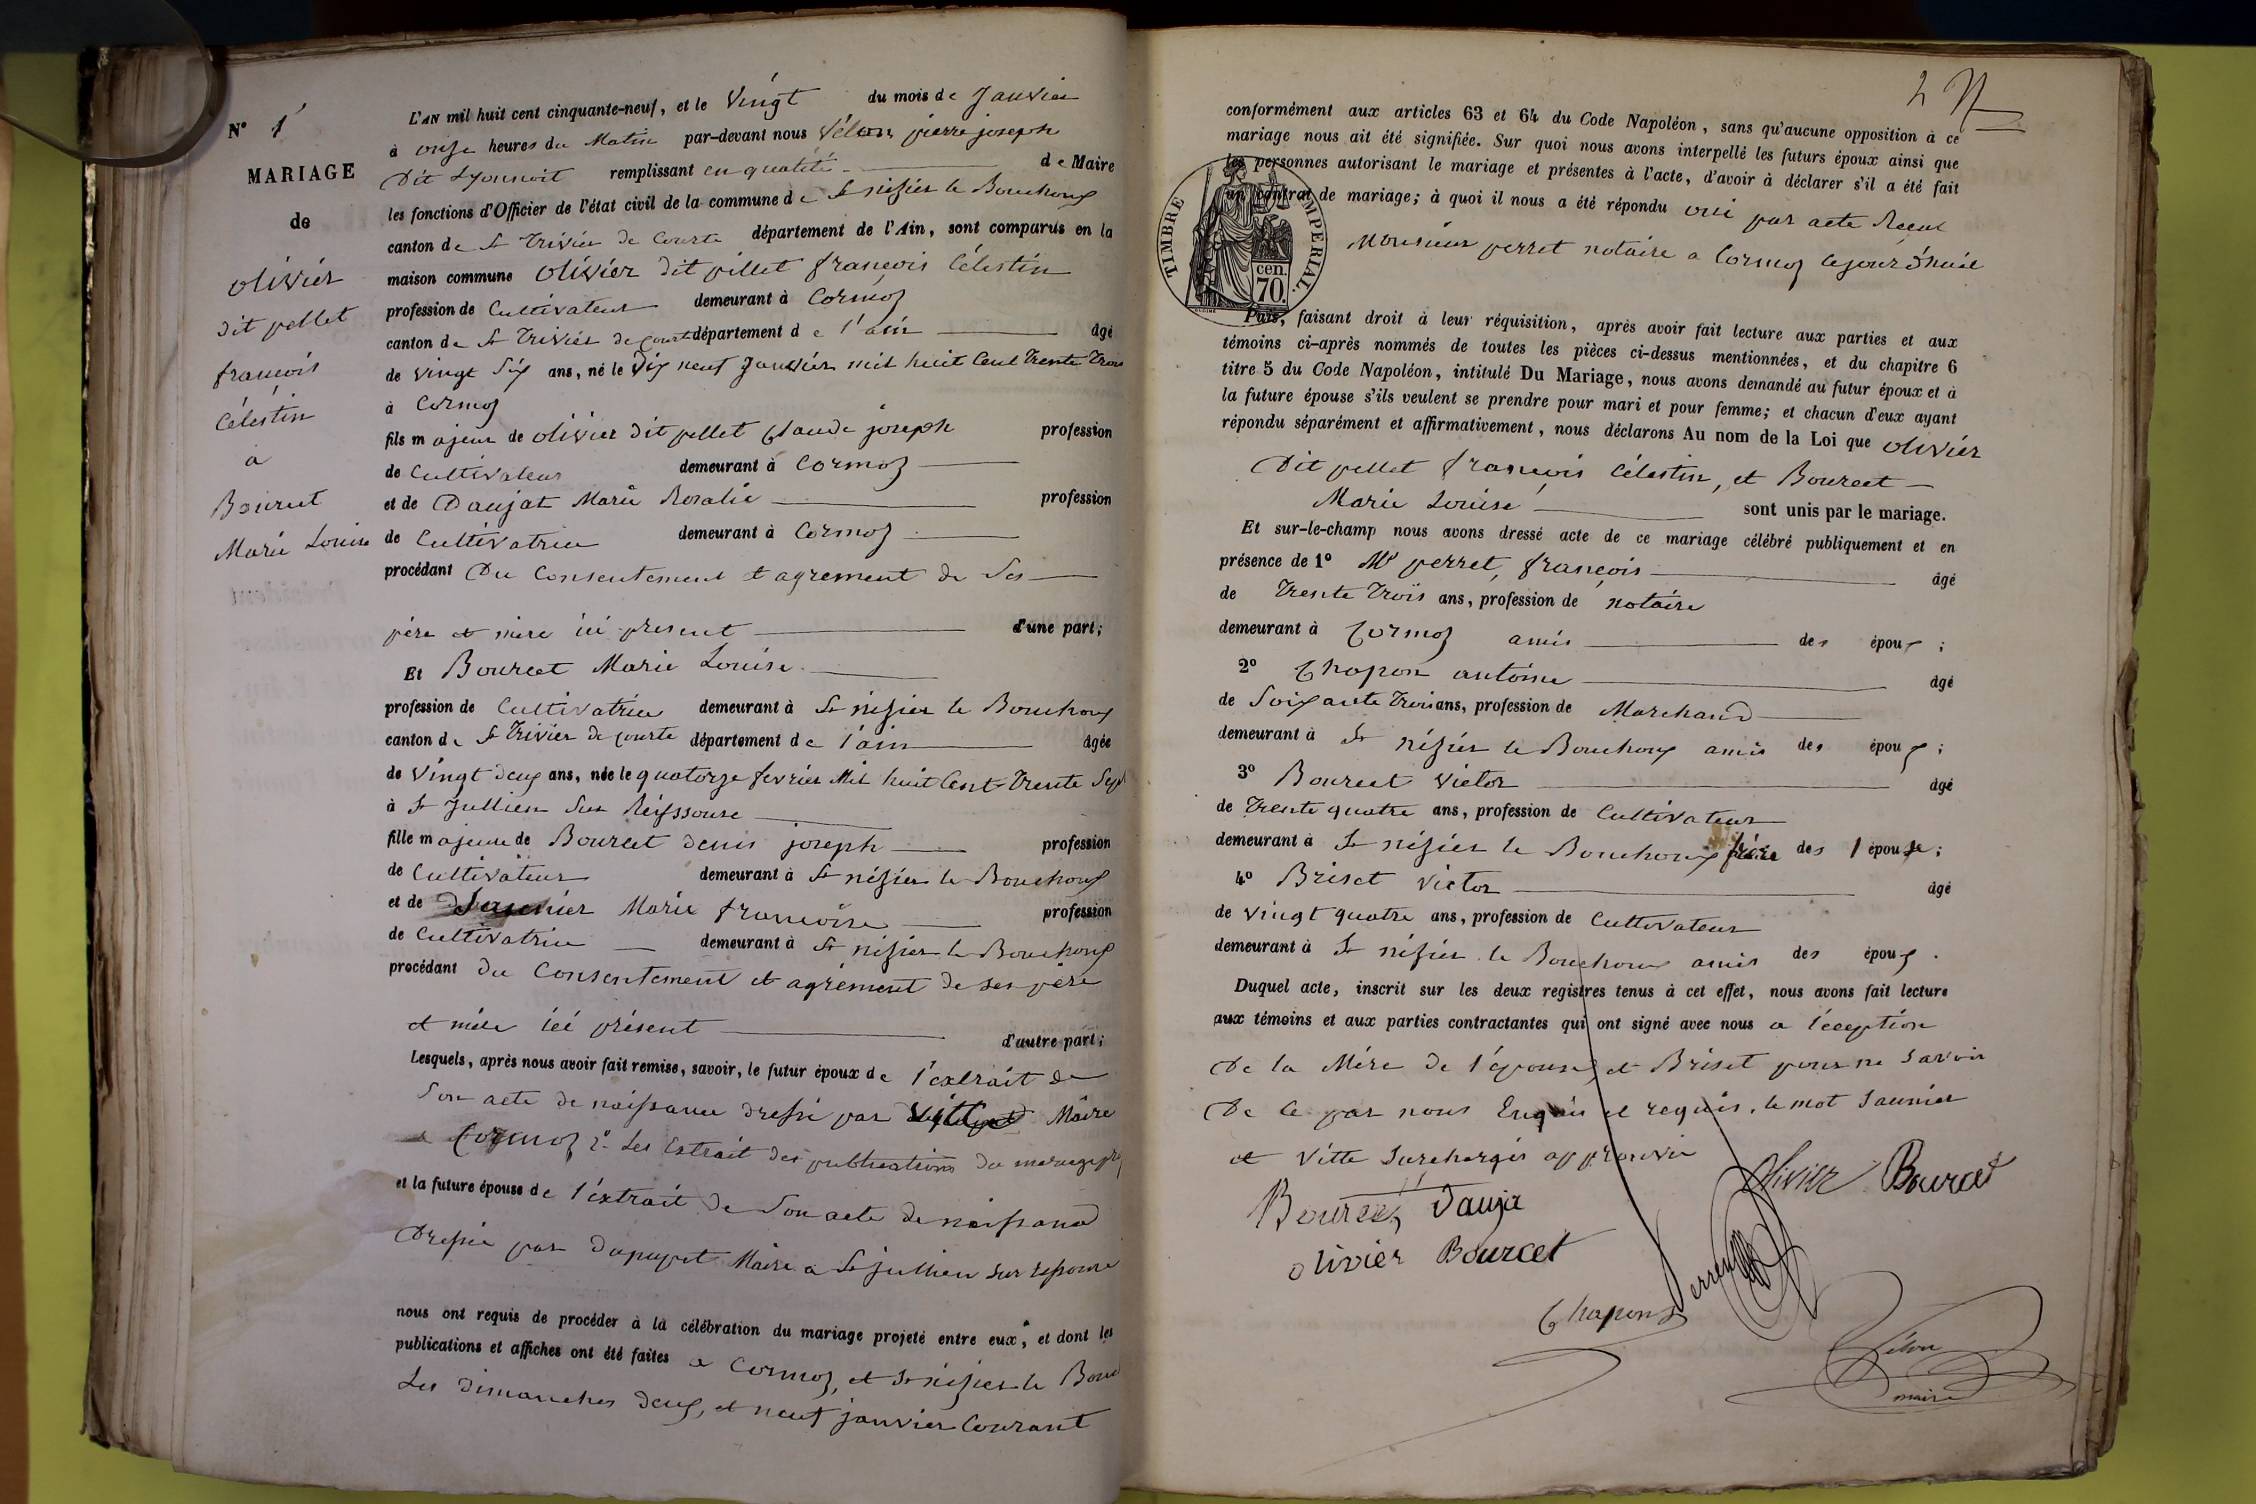 N° 1
MARIAGE
de
olivier
dit pellet
françois
Célestin
a
Bourcet
Marie Louise
L'AN mil huit cent cinquante-neuf, et le Vingt du mois de Janvier
à onze heures du Matin par-devant nous Vélon pierre joseph
Dit Lyonnoit remplissant en qualité de Maire
les fonctions d'Officier de l'état civil de la commune de St nizier le Bouchoux
canton de St Trivier de Courte département de l'Ain, sont comparus en la
maison commune olivier dit pillet françois Célestin
profession de Cultivateur demeurant à Cormoz
canton de St Trivier de Court département de l'ain âgé
de vingt Six ans, né le Dix neuf Janvier mil huit Cent Trente Trois
à Cormoz
fils majeur de olivier dit pellet Claude joseph profession
de Cultivateur demeurant à Cormoz
et de Daujat Marie Rosalie profession
de Cultivatrice demeurant à Cormoz
procédant Du Consentement et agrement de Ses
père et mère ici present d'une part;
Et Bourcet Marie Louise
profession de Cultivatrice demeurant à St nizier le Bouchoux
canton de St Trivier de Courte département de l'ain âgée
de Vingt deux ans, née le quatorze fevrier Mil huit Cent Trente Sept
à St Jullien Sur Reissouse
fille majeure de Bourcet denis joseph profession
de Cultivateur demeurant à St nizier le Bouchoux
et de Saunier Marie françoise profession
de Cultivatrice demeurant à St nizier le Bouchoux
procédant du Consentement et agrément de ses père
et mère ici présent d'autre part;
Lesquels, après nous avoir fait remise, savoir, le futur époux de l'extrait de
Son acte de naissance dressé par Maire
a Cormoz 2° Les Extrait des publications du mariage
et la future épouse de l'extrait de Son acte de naissance
Dressée par Dupuget Maire a St Jullien sur ressouse
nous ont requis de procéder à la célébration du mariage projeté entre eux, et dont les
publications et affiches ont été faites a Cormoz, et St nizier le Bouc
Les dimanches deux, et neuf janvier Courant
2
conformément aux articles 63 et 64 du Code Napoléon, sans qu'aucune opposition à ce
mariage nous ait été signifiée. Sur quoi nous avons interpellé les futurs époux ainsi que
les personnes autorisant le mariage et présentes à l'acte, d'avoir à déclarer s'il a été fait
un contrat de mariage; à quoi il nous a été répondu oui par acte Recut
Monsieur perret notaire a Cormoz cejour d'huie
TIMBRE IMPÉRIAL.
70 cen.
Puis, faisant droit à leur réquisition, après avoir fait lecture aux parties et aux
témoins ci-après nommés de toutes les pièces ci-dessus mentionnées, et du chapitre 6
titre 5 du Code Napoléon, intitulé Du Mariage, nous avons demandé au futur époux et à
la future épouse s'ils veulent se prendre pour mari et pour femme; et chacun d'eux ayant
répondu séparément et affirmativement, nous déclarons Au nom de la Loi que olivier
Dit pellet françois Célestin, et Bourcet
Marie Louise sont unis par le mariage.
Et sur-le-champ nous avons dressé acte de ce mariage célébré publiquement et en
présence de 1° Mr perret, françois âgé
de Trente Trois ans, profession de notaire
demeurant à Cormoz amis des époux;
2° Chapon antoine âgé
de Soixante Trois ans, profession de Marchand
demeurant à St nizier le Bouchoux amis des époux;
3° Bourcet Victor âgé
de Trente quatre ans, profession de Cultivateur
demeurant à St nizier le Bouchoux frère des l'épouse;
4° Briset Victor âgé
de vingt quatre ans, profession de Cultivateur
demeurant à St nizier le Bouchoux amis des époux.
Duquel acte, inscrit sur les deux registres tenus à cet effet, nous avons fait lecture
aux témoins et aux parties contractantes qui ont signé avec nous a l'éception
De la Mère de l'épouse, et Briset pour ne Savoir
De Ce par nous Enquis et requis, le mot Saunier
et Vitte Surchargés approuvé
Bourcet Dauja Olivier Bourcet
olivier Bourcet
Perret
Chapon
Vélon
maire